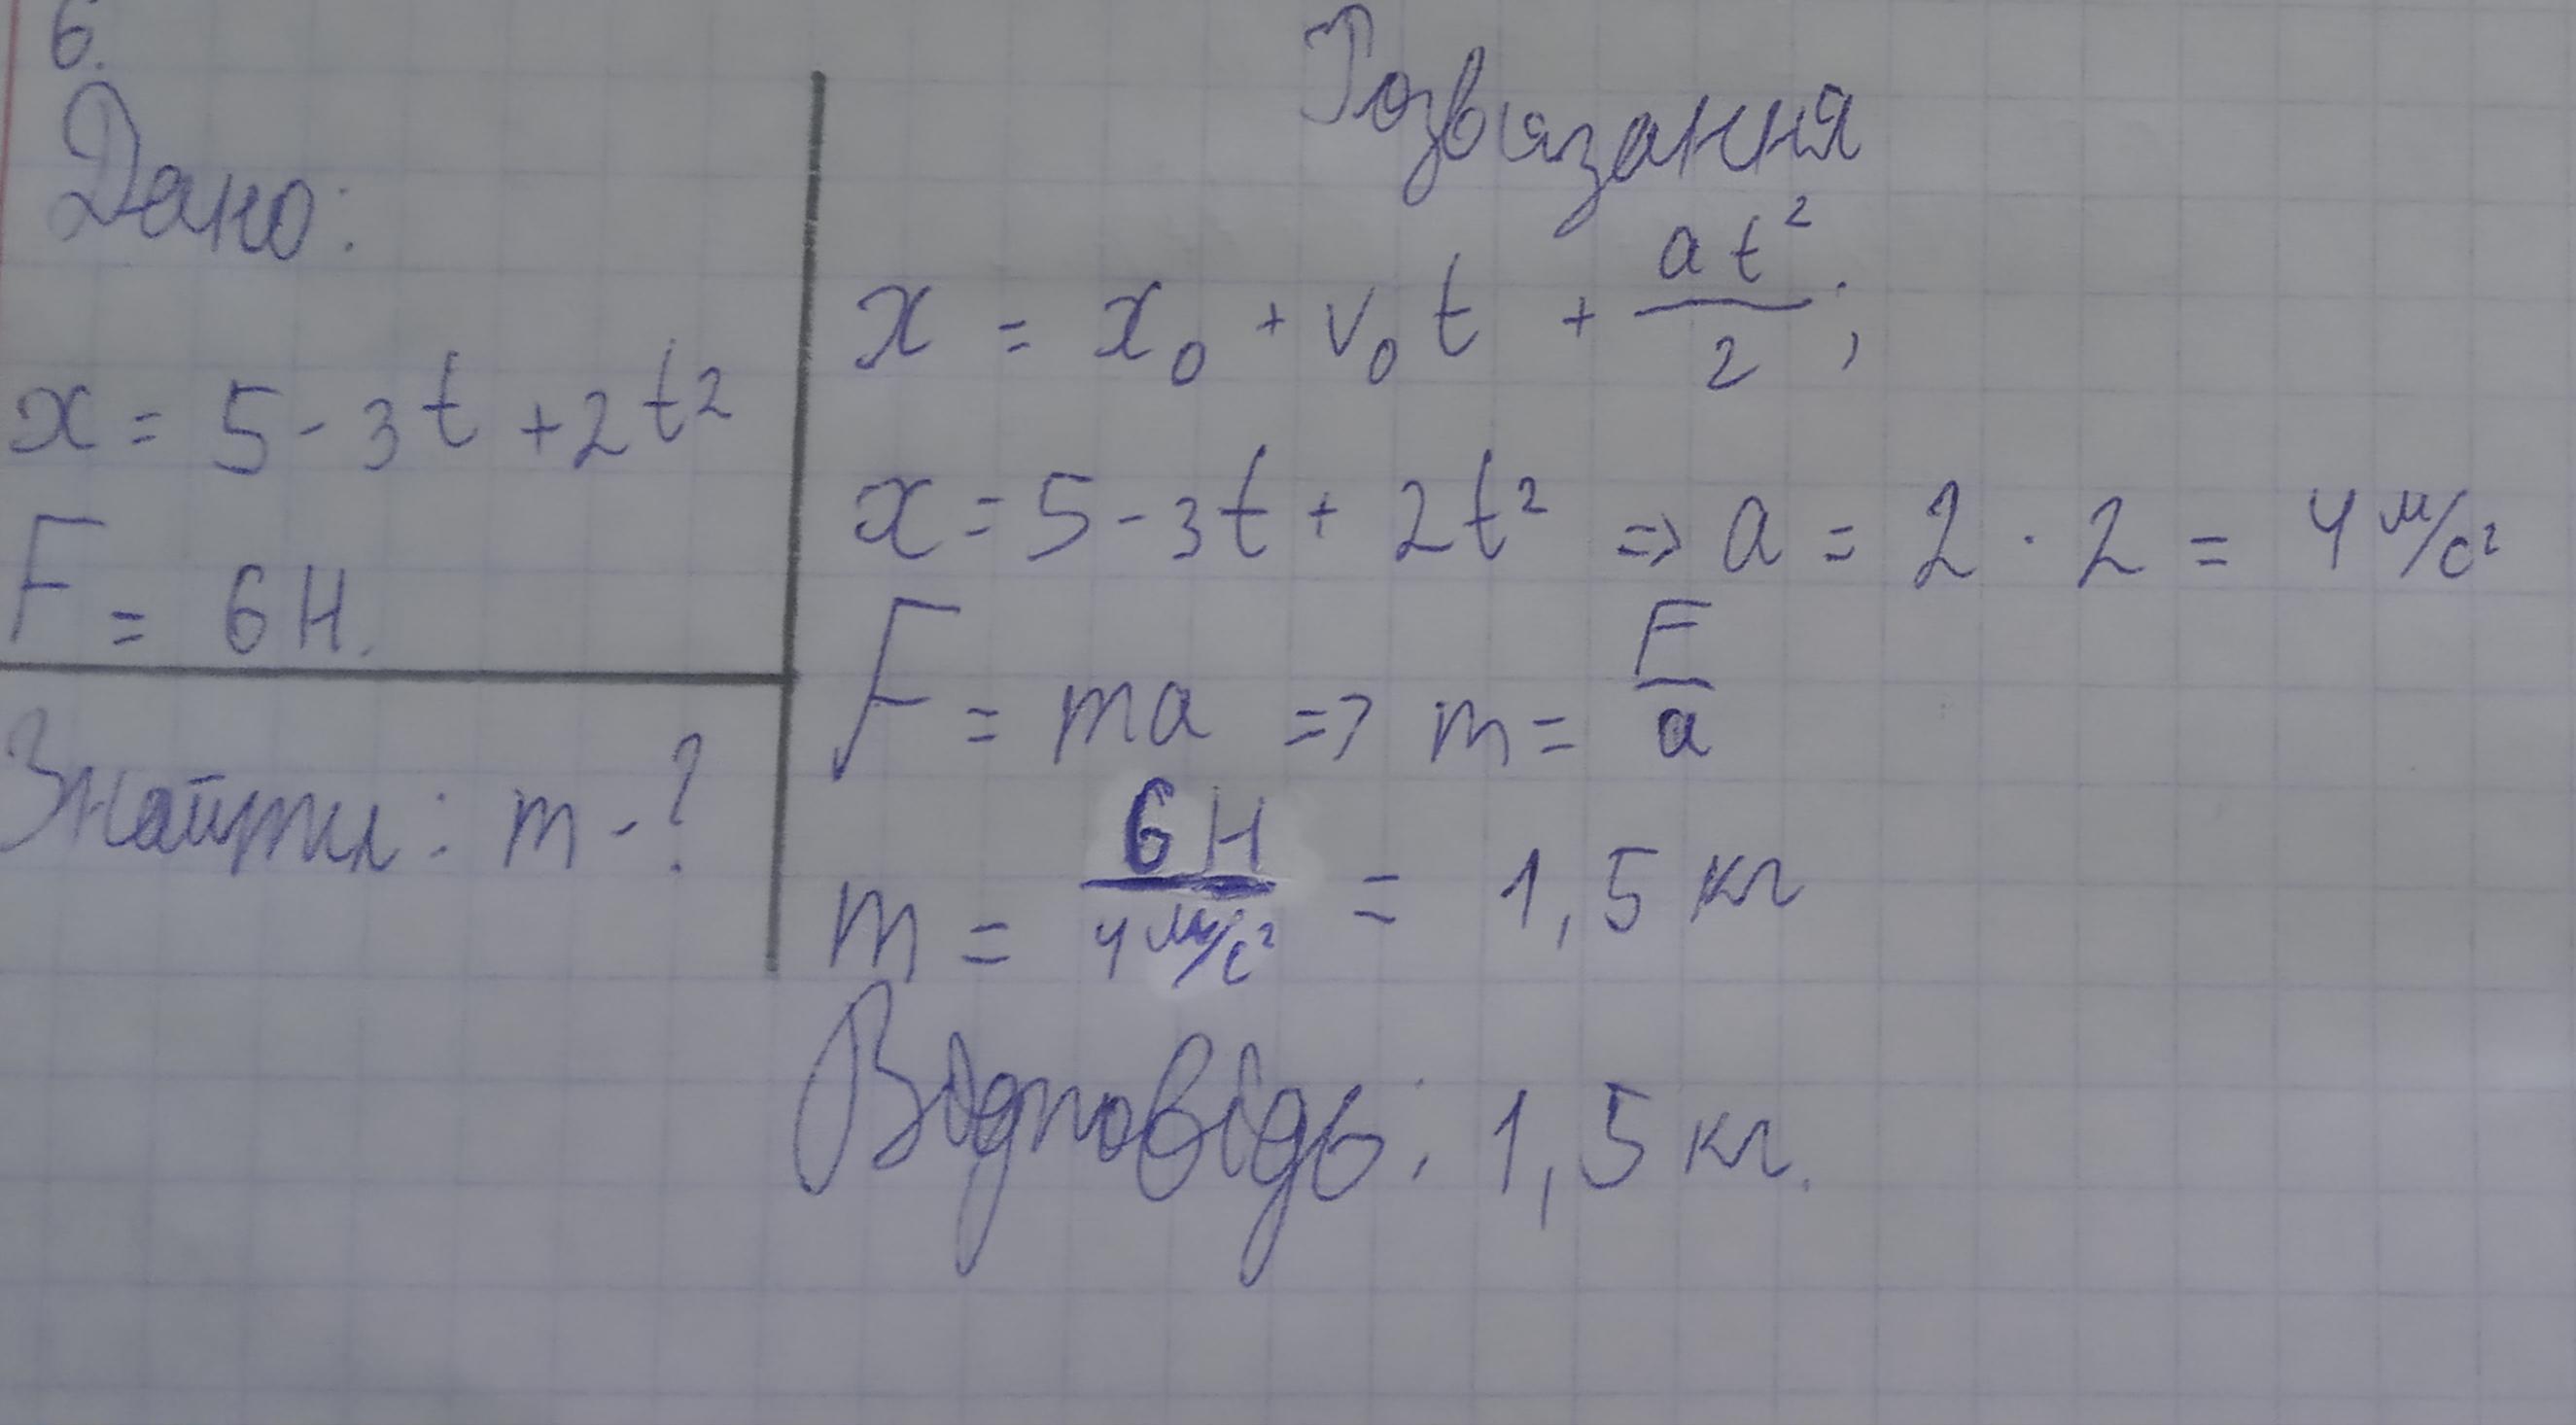 6.
Дано:
x = 5 - 3t + 2t²
F = 6 Н.
Знайти: m - ?
Розвязання
x = x₀ + v₀t + at²/2;
x = 5 - 3t + 2t² => a = 2 · 2 = 4 м/с²
F = ma => m = F/a
m = 6 Н / 4 м/с² = 1,5 кг
Відповідь: 1,5 кг.